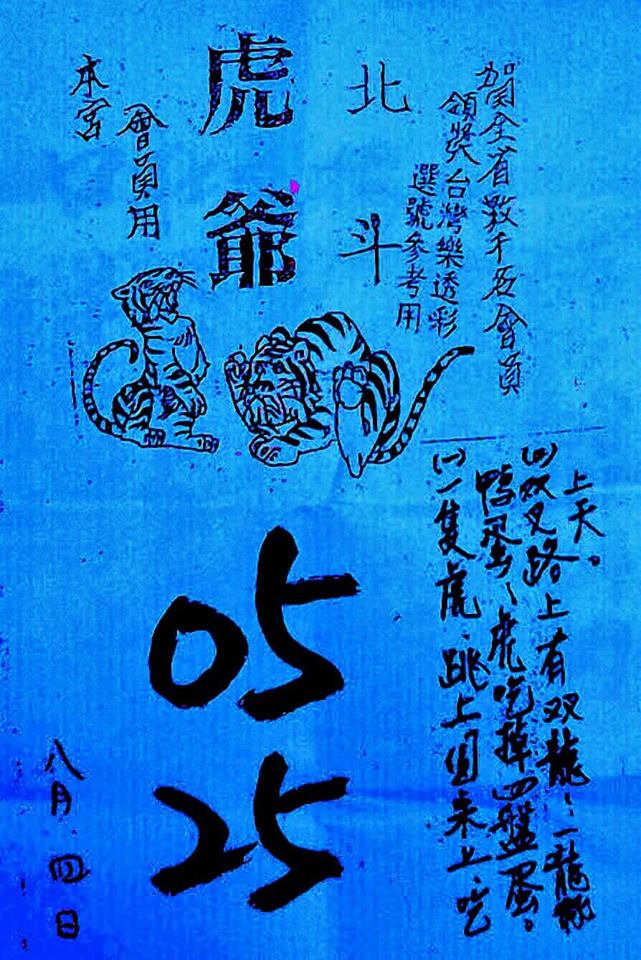 賀全省數千名會員
領獎台灣樂透彩
選號參考用
北斗
虎爺
本宮
會員用
(一)一隻虎、跳上圓桌上、吃
鴨蛋、虎吃掉四盤蛋。
(二)双叉路。上有双龍、一龍
上天。
05
25
八月四日